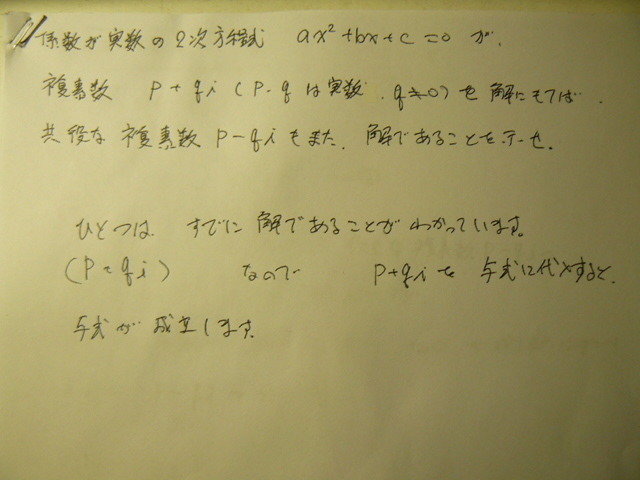 係数が実数の2次方程式 ax²+bx+c=0 が、
複素数 P+qi (P.qは実数、q≠0)を解にもてば、
共役な複素数 P-qi もまた、解であることを示せ。
ひとつは すでに解であることがわかっています。
(P+qi) なので P+qiを与式に代入すると、
与式が成立します。